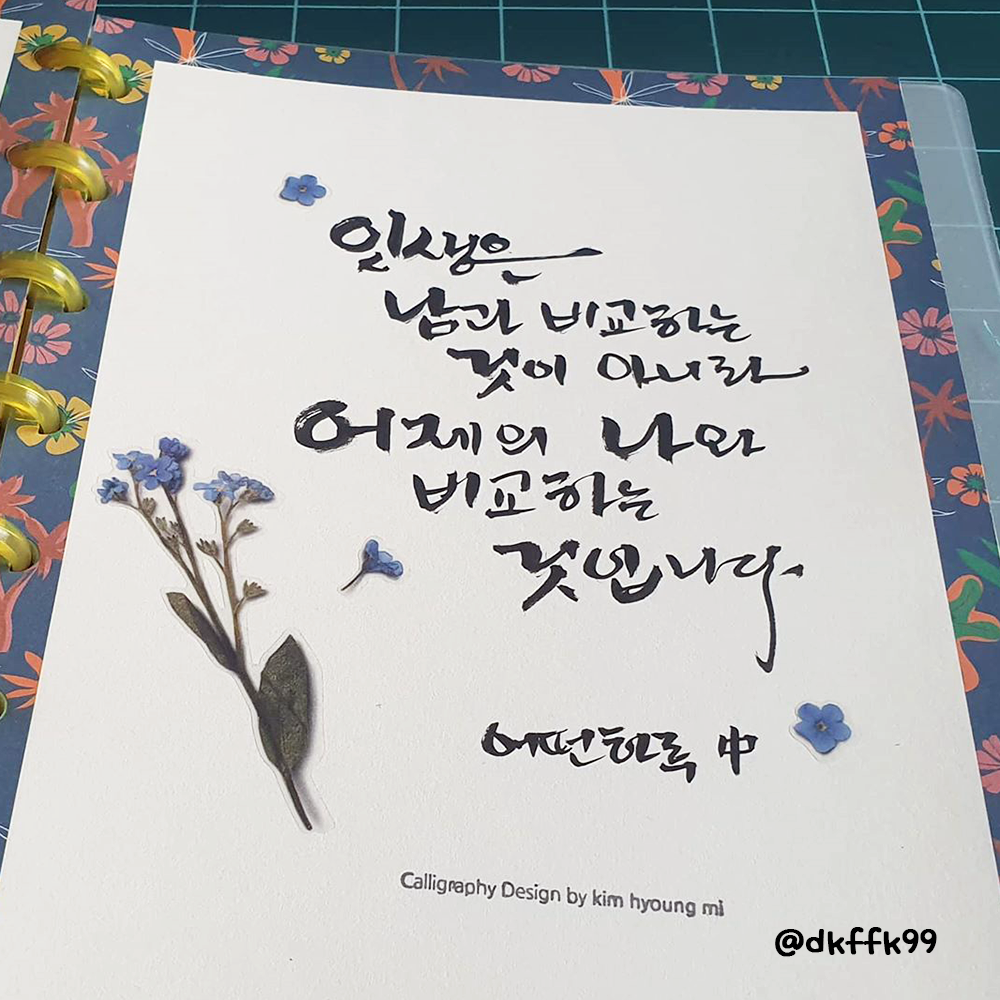 인생은
남과 비교하는
것이 아니라
어제의 나와
비교하는
것입니다
어떤하루 中
Calligraphy Design by kim hyoung mi
@dkffk99